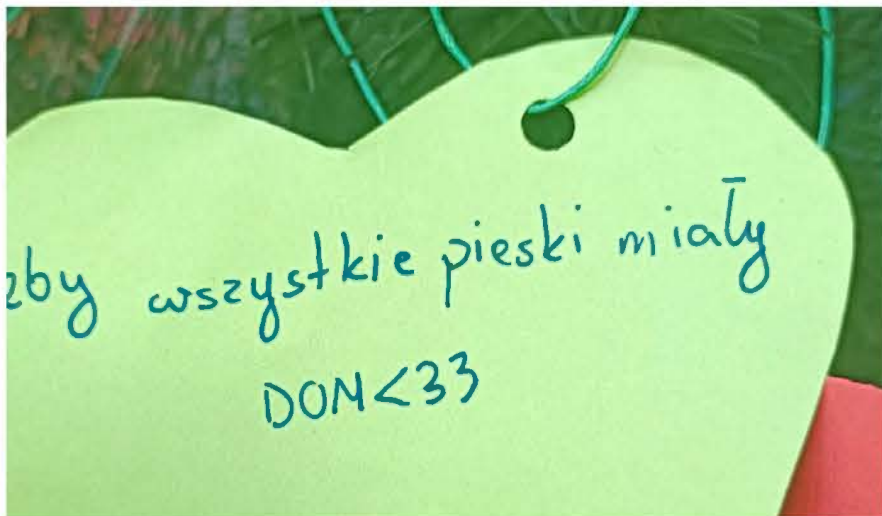 żby wszystkie pieski miały
DOM<33